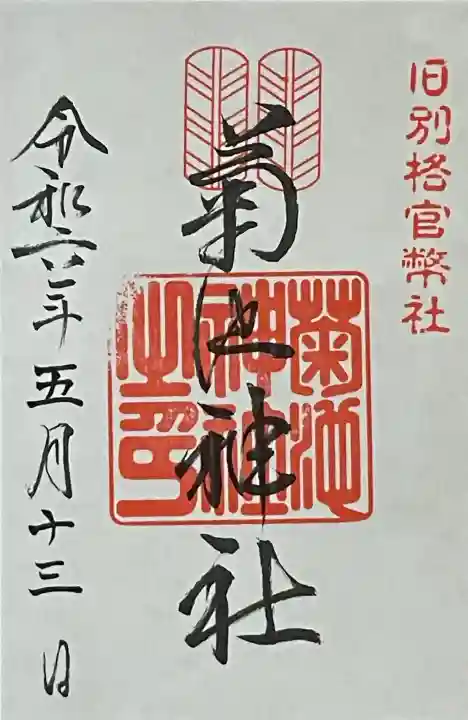 旧別格官幣社
菊池神社
菊池
神社
之印
令和六年五月十三日